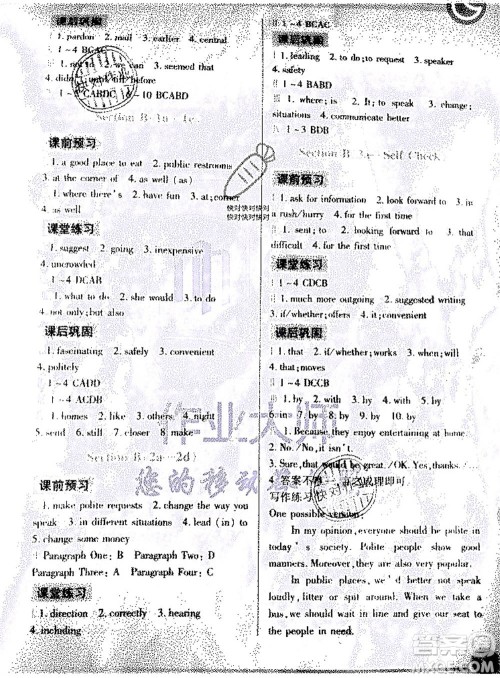 课后巩固
1. pardon 2. mail 3. earlier 4. central
1~4 BCAC
1. not to 2. we can 3. it seemed that
4. didn't until before
1~5 CABDC 6~10 BCABD
Section B 1a—1e
课前预习
1. a good place to eat 2. public restrooms
3. at the corner of 4. as well (as)
1. where there's 2. have fun 3. at; corner
4. as well
课堂练习
1. suggest 2. going 3. inexpensive
4. uncrowded
1~4 DCAB
1. what to do 2. he should 3. to do
4. not only; but also
课后巩固
1. fascinating 2. safely 3. convenient
4. politely
1~4 CADD
1~4 ACDB
1. homes 2. like 3. others 4. night
5. send 6. still 7. closer 8. make
Section B 2a—2d
课前预习
1. make polite requests 2. change the way you
speak 3. in different situations 4. lead (in) to
5. change some money
Paragraph One: B Paragraph Two: D
Paragraph Three: A Paragraph Four: C
课堂练习
1. direction 2. correctly 3. hearing
4. including
1~4 BCAC
课后巩固
1. leading 2. to do; to request 3. speaker
4. safety
1~4 BABD
1. where; is 2. It; to speak 3. change;
situations 4. communicate better
1~3 BDB
Section B 3a—Self Check
课前预习
1. ask for information 2. look forward to 3. in
a rush/hurry 4. for the first time
1. sent; to 2. looking forward to 3. that
difficult 4. for the first time
课堂练习
1~4 CDCB
1. much more outgoing 2. suggested writing
3. if/whether; offers 4. it is convenient
课后巩固
1. that 2. if/whether; works 3. when; begin
4. that; moves
1~4 DCCB
1. by 2. with 3. by 4. by 5. by
6. in 7. by 8. by 9. by 10. by
1. Because they enjoy entertaining at home.
2. No./No, it isn't.
3. Sure, that would be great. /OK. /Yes, thanks.
4. 答案不唯一, 言之成理即可。
写作练习
One possible version:
In my opinion, everyone should be polite in
today's society. Polite people show good
manners. Moreover, they are respected by others.
In public places, we'd better not speak
loudly, litter or spit around. When we take a
bus, we should wait in line and give our seat to
the people in need.
作业大师
您的移动
快对快对快对
快对快对快对
快对作业
快对作业
答案圈
MXQE.COM